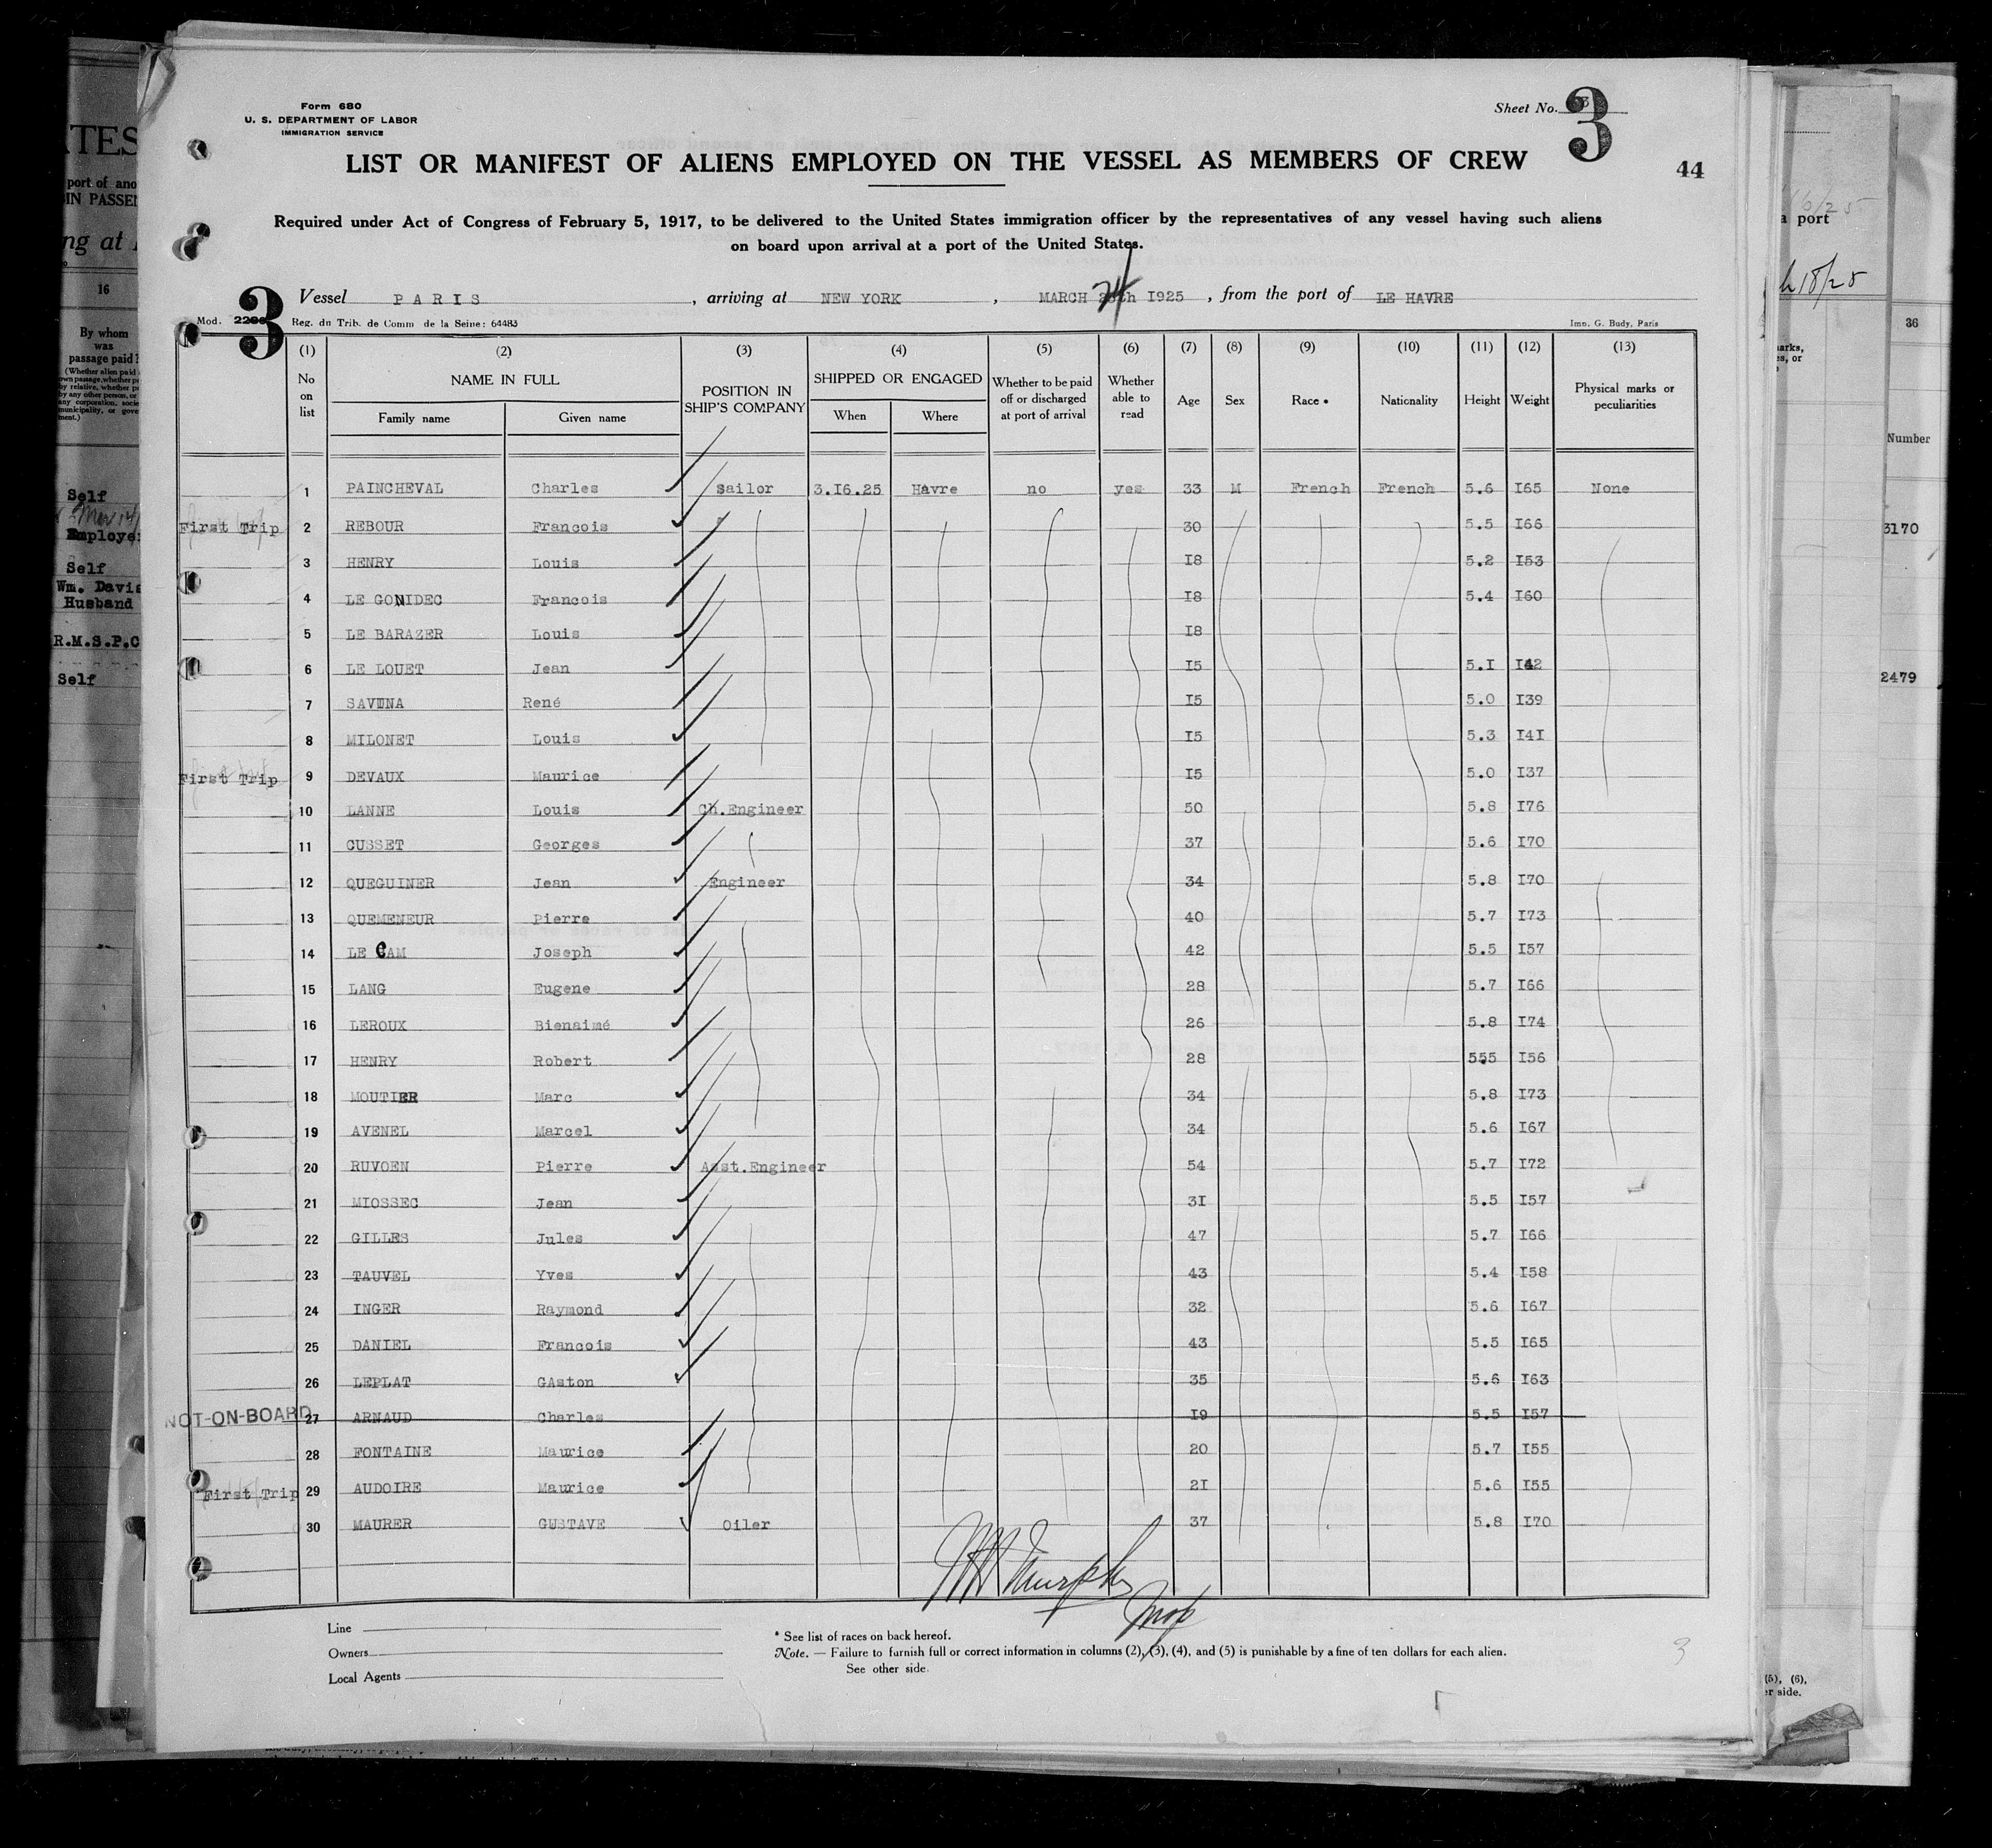 Form 680
U. S. DEPARTMENT OF LABOR
IMMIGRATION SERVICE
Sheet No. 3
3
LIST OR MANIFEST OF ALIENS EMPLOYED ON THE VESSEL AS MEMBERS OF CREW
44
Required under Act of Congress of February 5, 1917, to be delivered to the United States immigration officer by the representatives of any vessel having such aliens
on board upon arrival at a port of the United States.
3
Vessel PARIS, arriving at NEW YORK, MARCH 24th I925, from the port of LE HAVRE
Mod. Reg. du Trib. de Comm de la Seine: 64483 Imp. G. Budy, Paris
(1) (2) (3) (4) (5) (6) (7) (8) (9) (10) (11) (12) (13)
No on list NAME IN FULL Family name Given name POSITION IN SHIP'S COMPANY SHIPPED OR ENGAGED When Where Whether to be paid off or discharged at port of arrival Whether able to read Age Sex Race • Nationality Height Weight Physical marks or peculiarities
1 PAINCHEVAL Charles Sailor 3.I6.25 Havre no yes 33 M French French 5.6 I65 None
First Trip 2 REBOUR Francois 30 5.5 I66
3 HENRY Louis I8 5.2 I53
4 LE GONIDEC Francois I8 5.4 I60
5 LE BARAZER Louis I8
6 LE LOUET Jean I5 5.I I42
7 SAVINA René I5 5.0 I39
8 MILONET Louis I5 5.3 I4I
First Trip 9 DEVAUX Maurice I5 5.0 I37
10 LANNE Louis Ch.Engineer 50 5.8 I76
11 CUSSET Georges 37 5.6 I70
12 QUEGUINER Jean Engineer 34 5.8 I70
13 QUEMENEUR Pierre 40 5.7 I73
14 LE CAM Joseph 42 5.5 I57
15 LANG Eugene 28 5.7 I66
16 LEROUX Bienaimé 26 5.8 I74
17 HENRY Robert 28 555 I56
18 MOUTIER Marc 34 5.8 I73
19 AVENEL Marcel 34 5.6 I67
20 RUVOEN Pierre Asst.Engineer 54 5.7 I72
21 MIOSSEC Jean 3I 5.5 I57
22 GILLES Jules 47 5.7 I66
23 TAUVEL Yves 43 5.4 I58
24 INGER Raymond 32 5.6 I67
25 DANIEL Francois 43 5.5 I65
26 LEPLAT GAston 35 5.6 I63
NOT-ON-BOARD 27 ARNAUD Charles I9 5.5 I57
28 FONTAINE Maurice 20 5.7 I55
First Trip 29 AUDOIRE Maurice 2I 5.6 I55
30 MAURER GUSTAVE Oiler 37 5.8 I70
Line
Owners
Local Agents
* See list of races on back hereof.
Note. — Failure to furnish full or correct information in columns (2), (3), (4), and (5) is punishable by a fine of ten dollars for each alien.
See other side.
3
port of
16
By whom
was
passage paid?
Self
Self
Wm. Davis
Husband
R.M.S.P.C
Self
a port
36
Number
3170
2479
(5), (6),
er side.